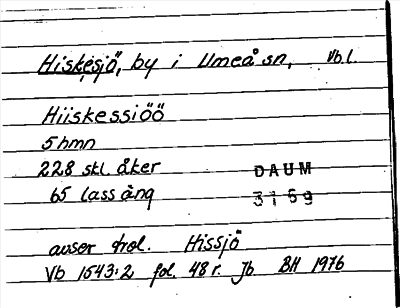 Hiskesjö, by i Umeå sn, Vbl.
Hiiskessiöö
5 hmn
228 skl. åker
DAUM
65 lass äng
3159
avser trol. Hissjö
Vb 1543:2 fol. 48 r. Jb BH 1976